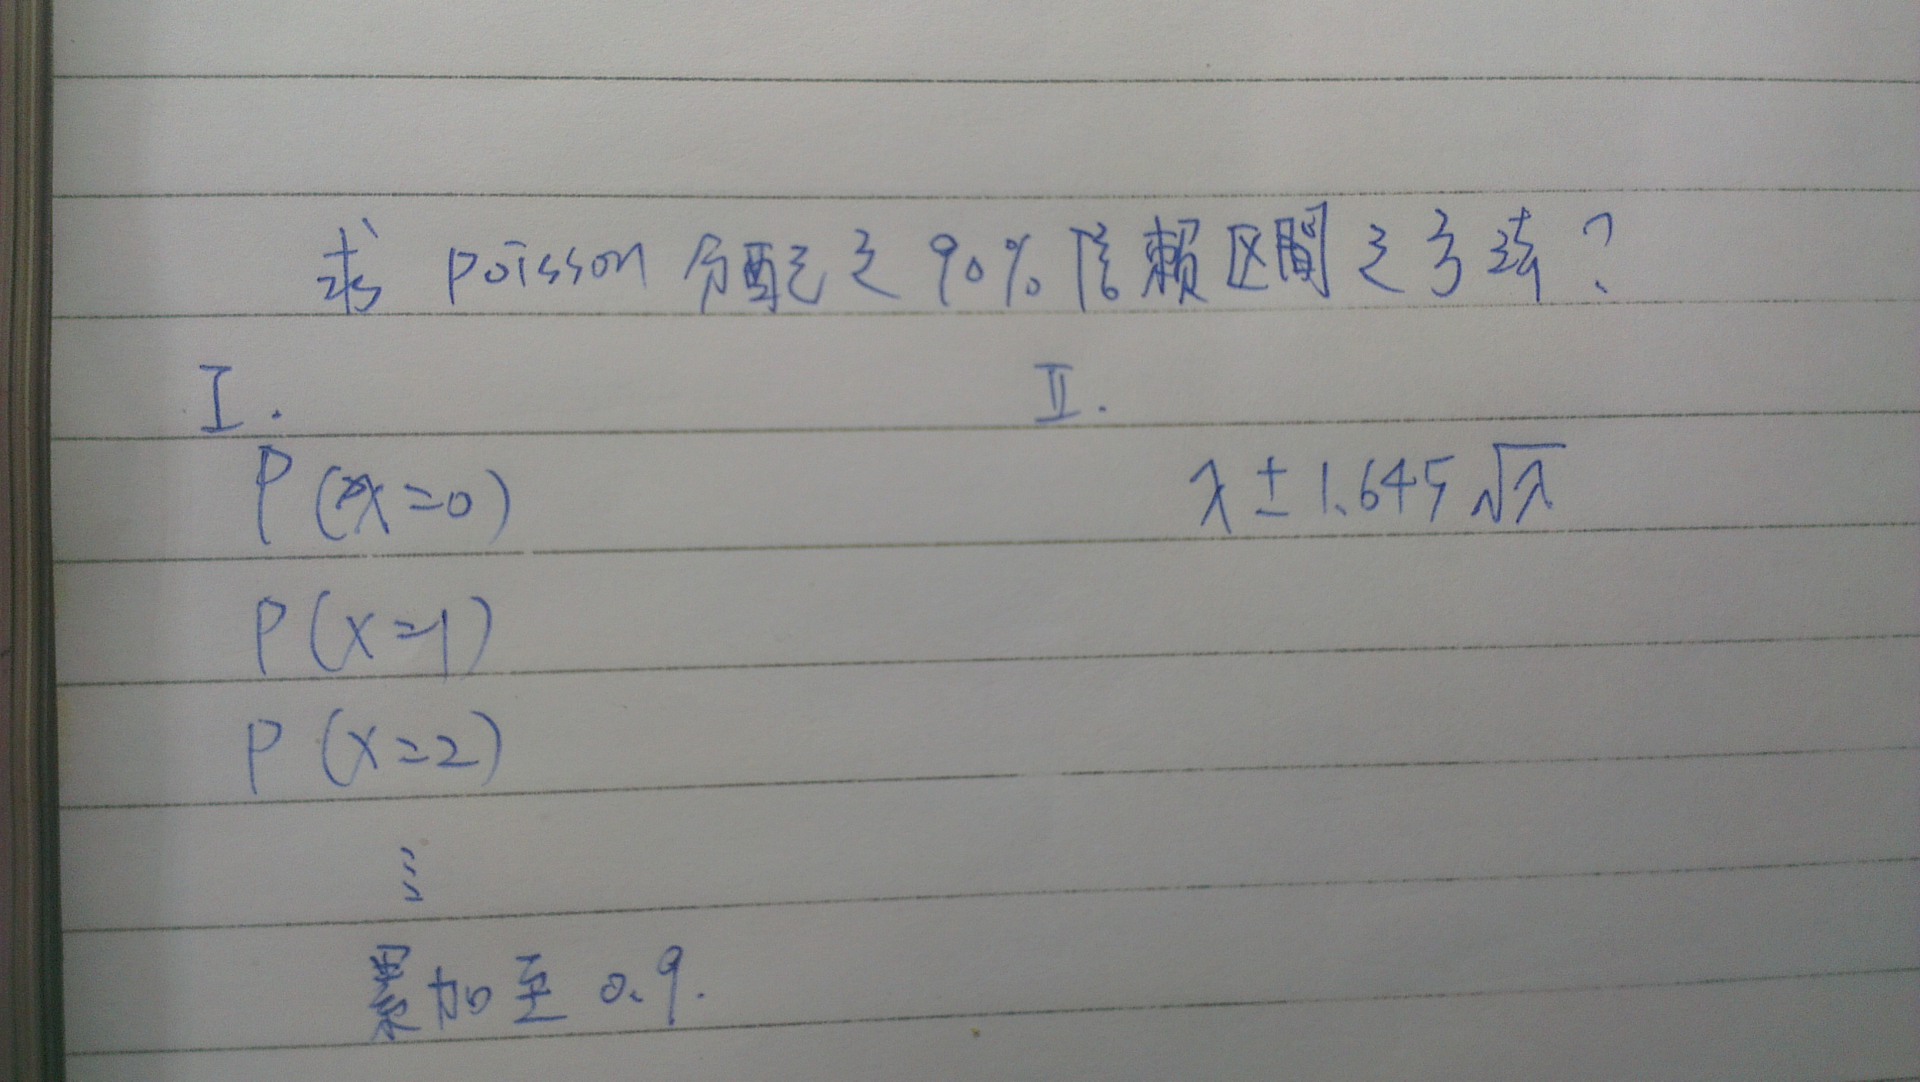 求 poisson 分配之 90% 信賴区間之方法?
I.
P(x=0)
P(x=1)
P(x=2)
⋮
累加至 0.9.
II.
λ ± 1.645 √λ